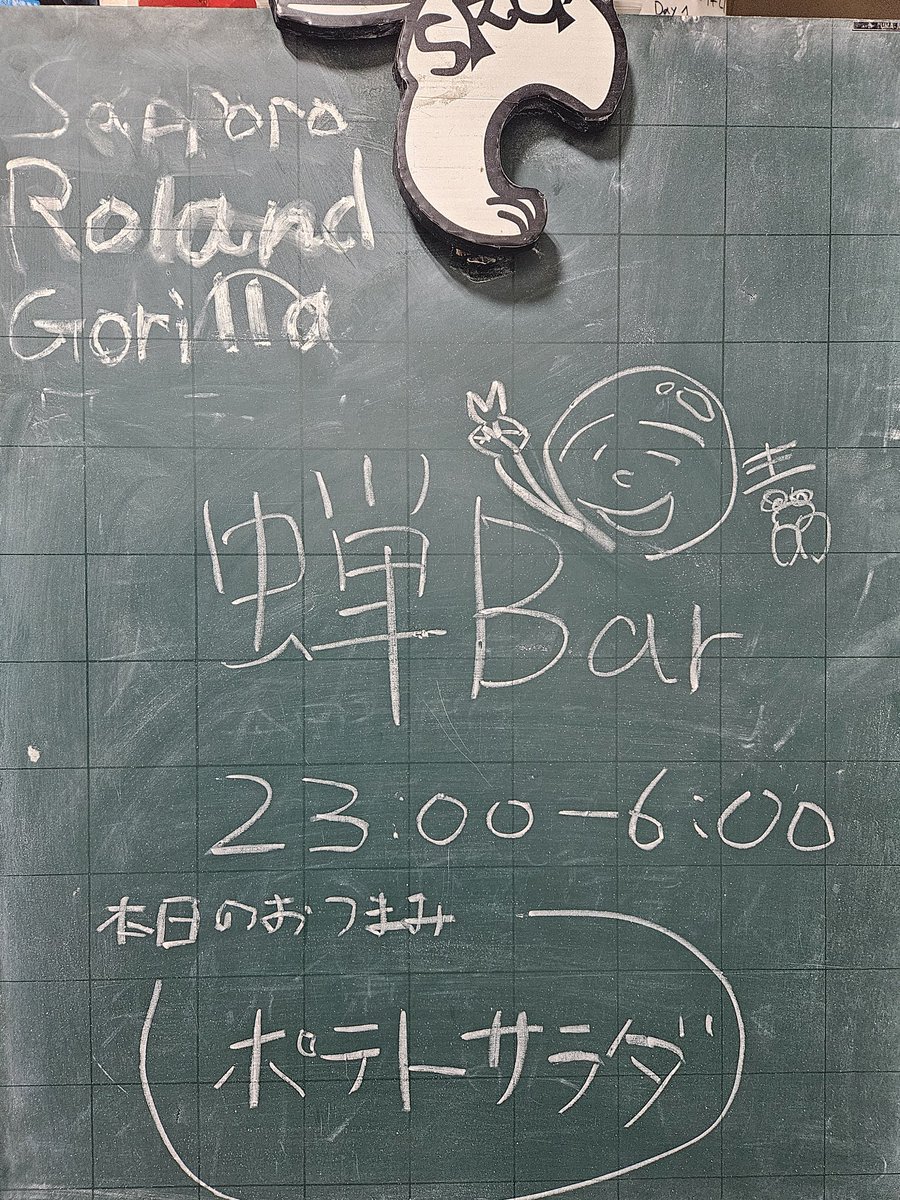 Day 1
Sapporo
Roland
Gorilla
蝉Bar
23:00-6:00
本日のおつまみ
ポテトサラダ